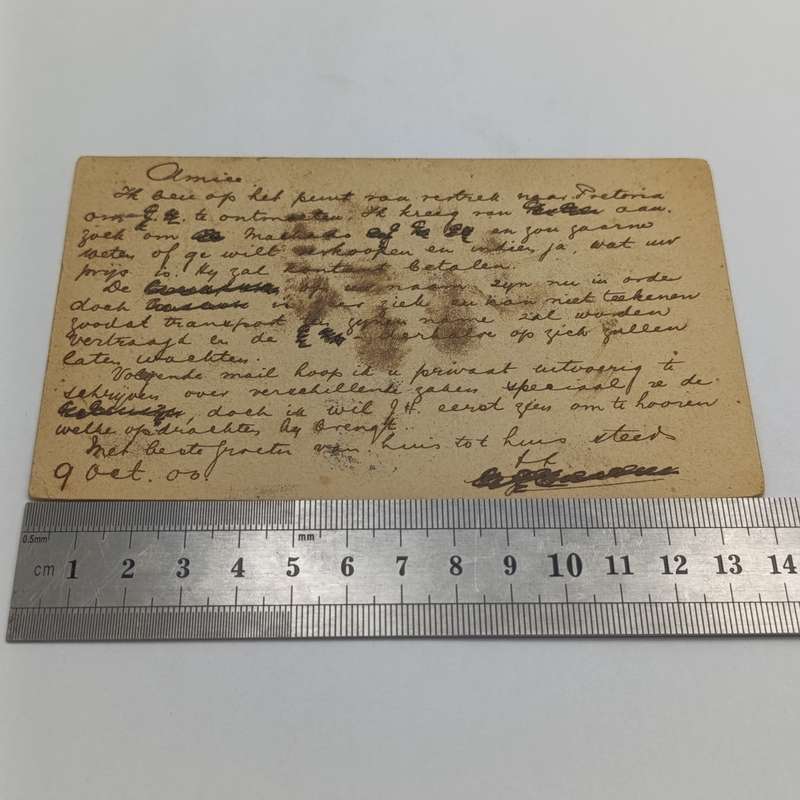 Amice.
Ik ben op het punt van vertrek naar Pretoria
om te ontmoeten. Ik kreeg van aan.
zoek om Machado en zou gaarne
weten of ge wilt verkoopen en indien ja, wat uw
prijs is. Hy zal kontant betalen.
De op uw naam zyn nu in orde
doch is zeer ziek en kan niet teekenen
zoodat transport te zynen name zal worden
vertraagd en de op zich zullen
laten wachten.
Volgende mail hoop ik u privaat uitvoerig te
schrijven over verschillende zaken speciaal re de
doch ik wil J.H. eerst zien om te hooren
welke opdrachten hy brengt.
Met beste groeten van huis tot huis steeds
tt
9 Oct. 00.
0.5mm
mm
cm 1 2 3 4 5 6 7 8 9 10 11 12 13 14